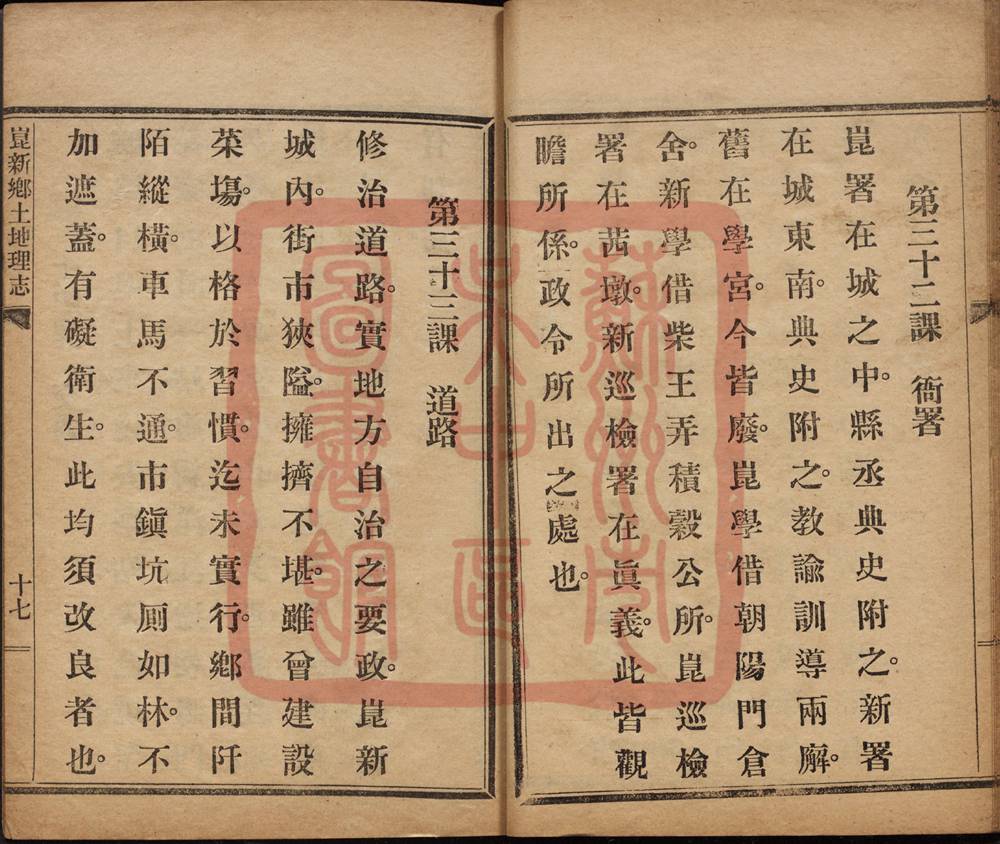 第三十二課　衙署
崑署在城之中。縣丞典史附之。新署
在城東南。典史附之。教諭訓導兩廨。
舊在學宮。今皆廢。崑學借朝陽門倉
舍。新學借柴王弄積穀公所。崑巡檢
署在茜墩。新巡檢署在眞義。此皆觀
瞻所係。政令所出之處也。
第三十三課　道路
修治道路。實地方自治之要政。崑新
城內。街市狹隘。擁擠不堪。雖曾建設
菜塲。以格於習慣。迄未實行。鄉間阡
陌縱橫。車馬不通。市鎭坑厠如林。不
加遮蓋。有礙衛生。此均須改良者也。
崑新鄉土地理志
十七
蘇州市
吳中區
圖書館